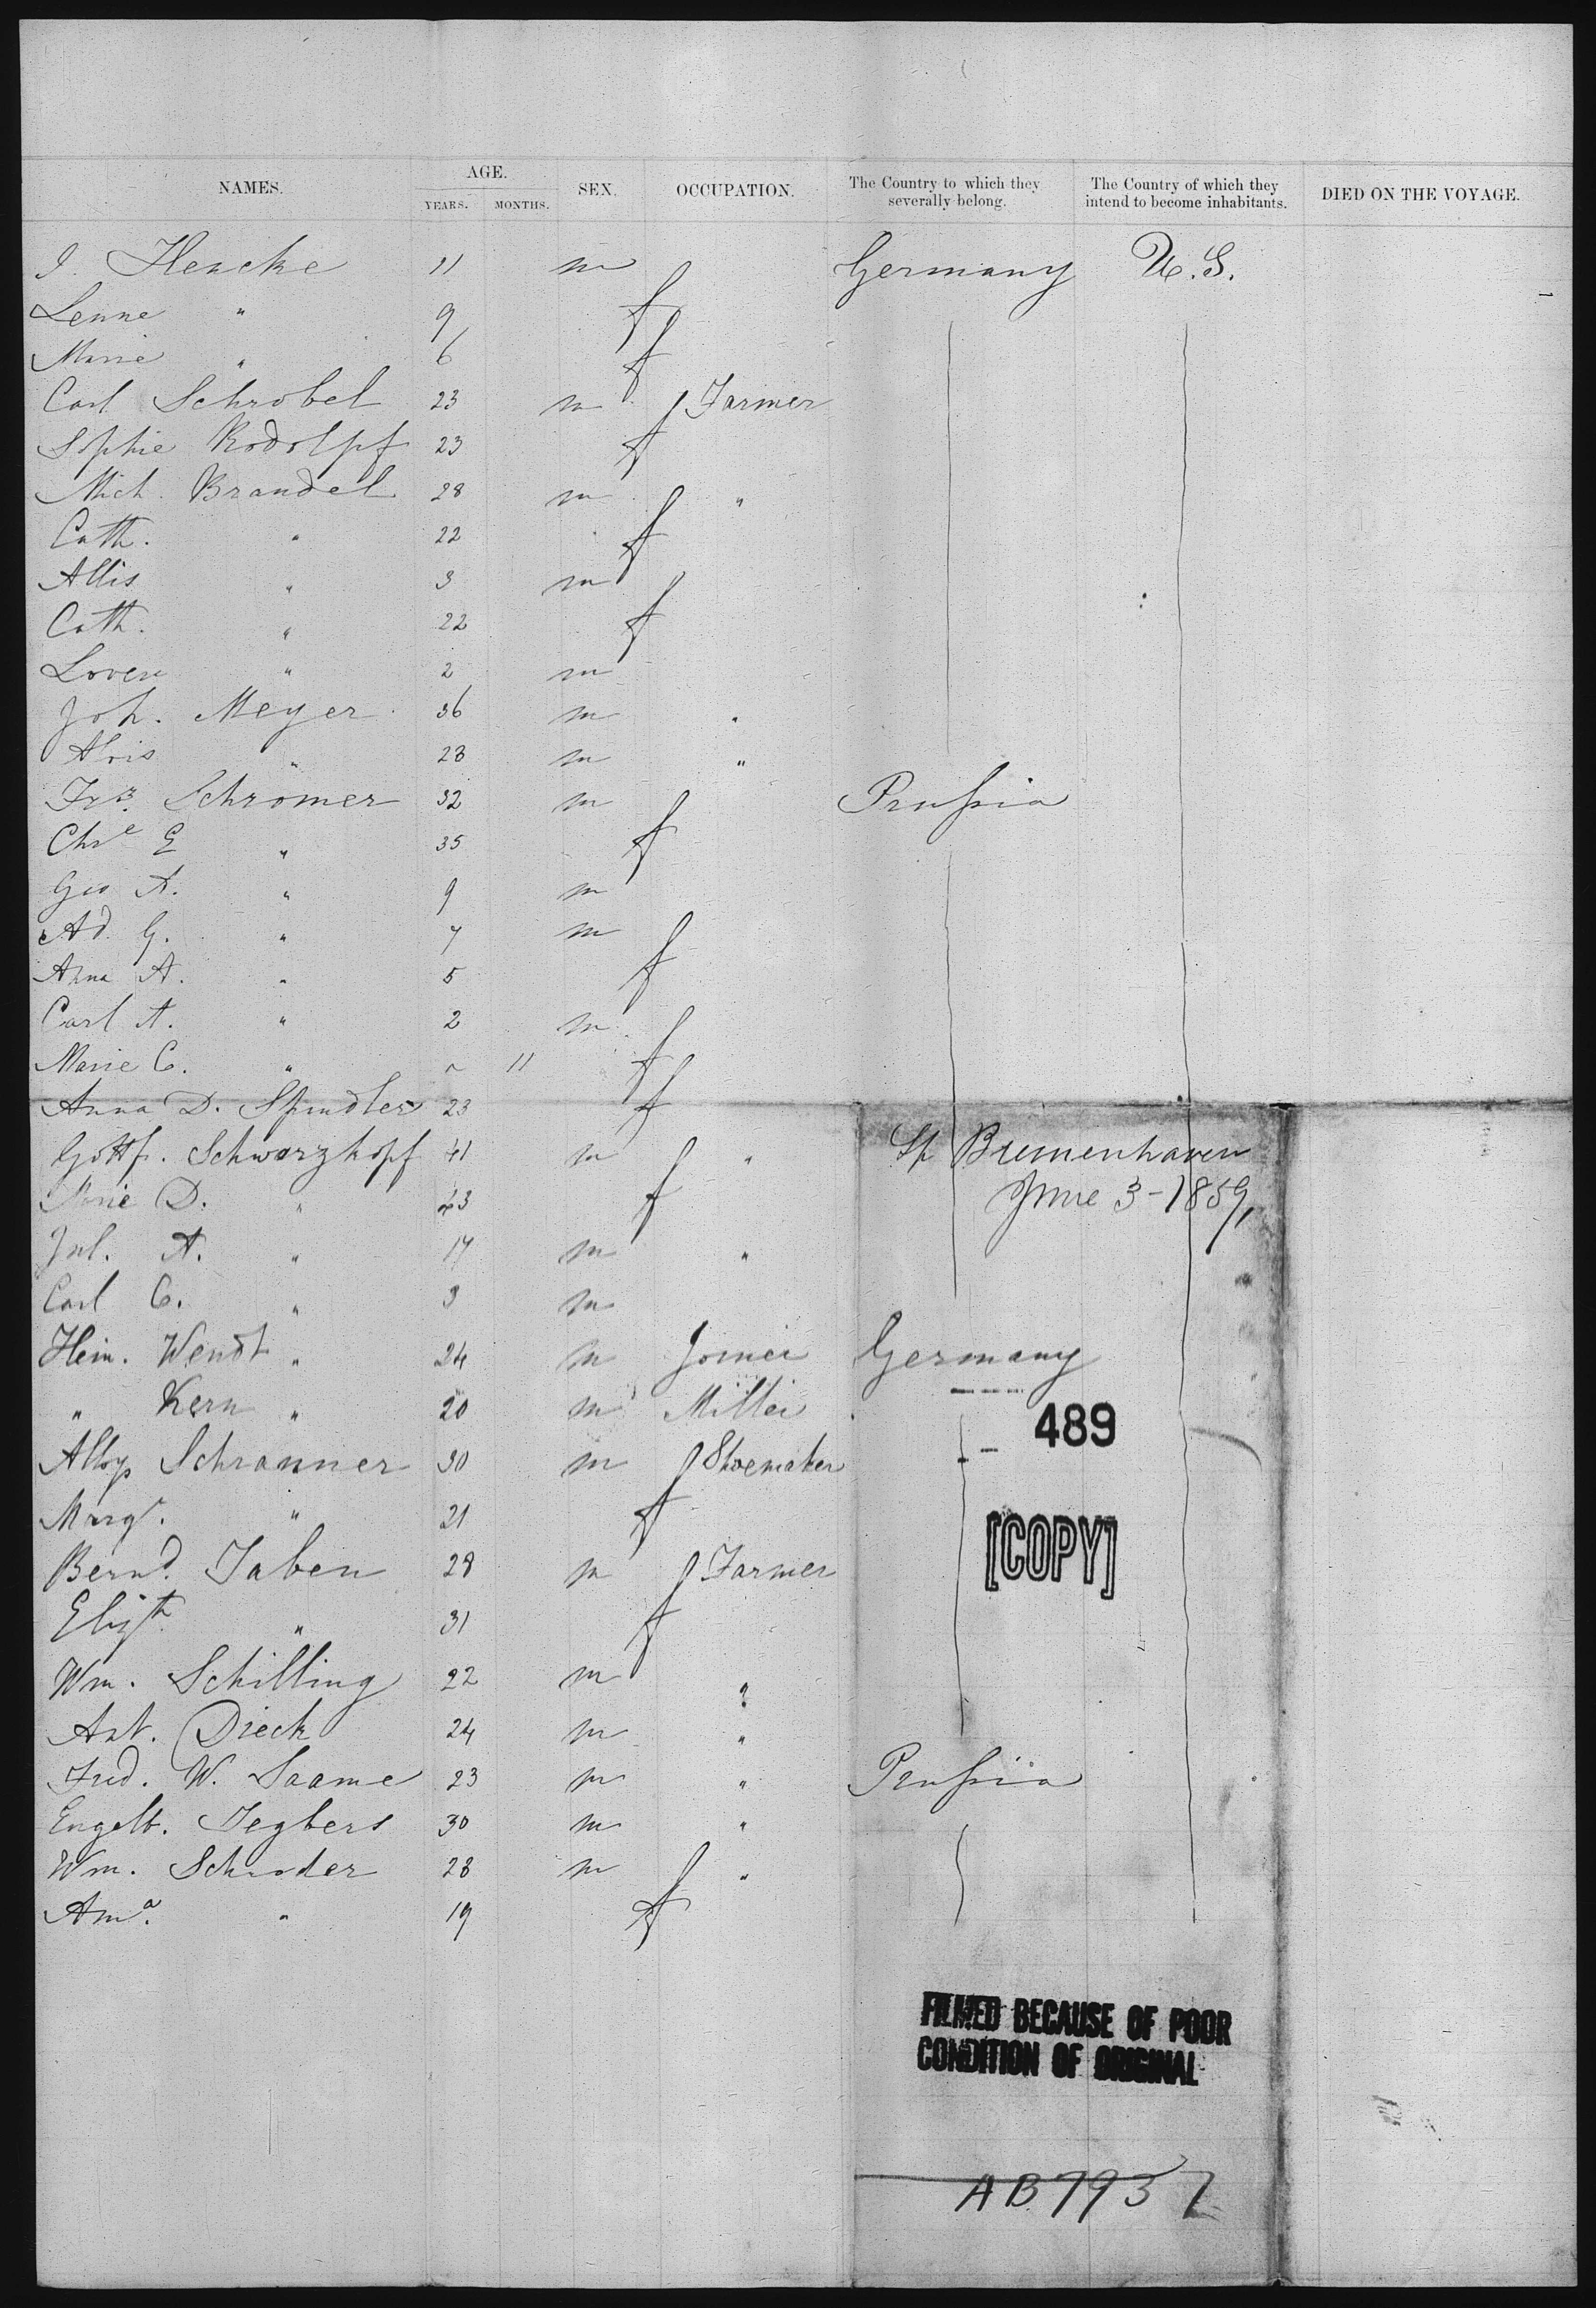 NAMES. AGE. YEARS. MONTHS. SEX. OCCUPATION. The Country to which they severally belong. The Country of which they intend to become inhabitants. DIED ON THE VOYAGE.
J. Hencke 11 m Germany U.S.
Lenne " 9 f
Marie " 6 f
Carl Schrobel 23 m Farmer
Sophie Rodolpf 23 f
Mich. Brandel 28 m "
Cath. " 22 f
Allis " 3 m
Cath. " 22 f
Loren " 2 m
Joh. Meyer 36 m "
Alois " 28 m "
Frz. Schromer 32 m Prussia
Chre E " 35 f
Geo A. " 9 m
Ad. G. " 7 m
Anna A. " 5 f
Carl A. " 2 m
Marie C. " ~ 11 f
Anna D. Spindler 23 f
Gottf. Schwarzkopf 41 m "
Marie D. " 43 f
Jul. A. " 17 m "
Carl C. " 3 m
Sp Bremenhaven
June 3-1859,
Hein. Wendt " 24 m Joiner Germany
" Kern " 20 m Miller
489
Alloys Schranner 30 m Shoemaker
Margt. " 21 f
[COPY]
Bernd. Taben 28 m Farmer
Elizth " 31 f
Wm. Schilling 22 m "
Ant. Dieck 24 m "
Fred. W. Saame 23 m " Prussia
Engelb. Tegbers 30 m "
Wm. Schroder 28 m "
Ama. " 19 f
FILMED BECAUSE OF POOR
CONDITION OF ORIGINAL
AB7937